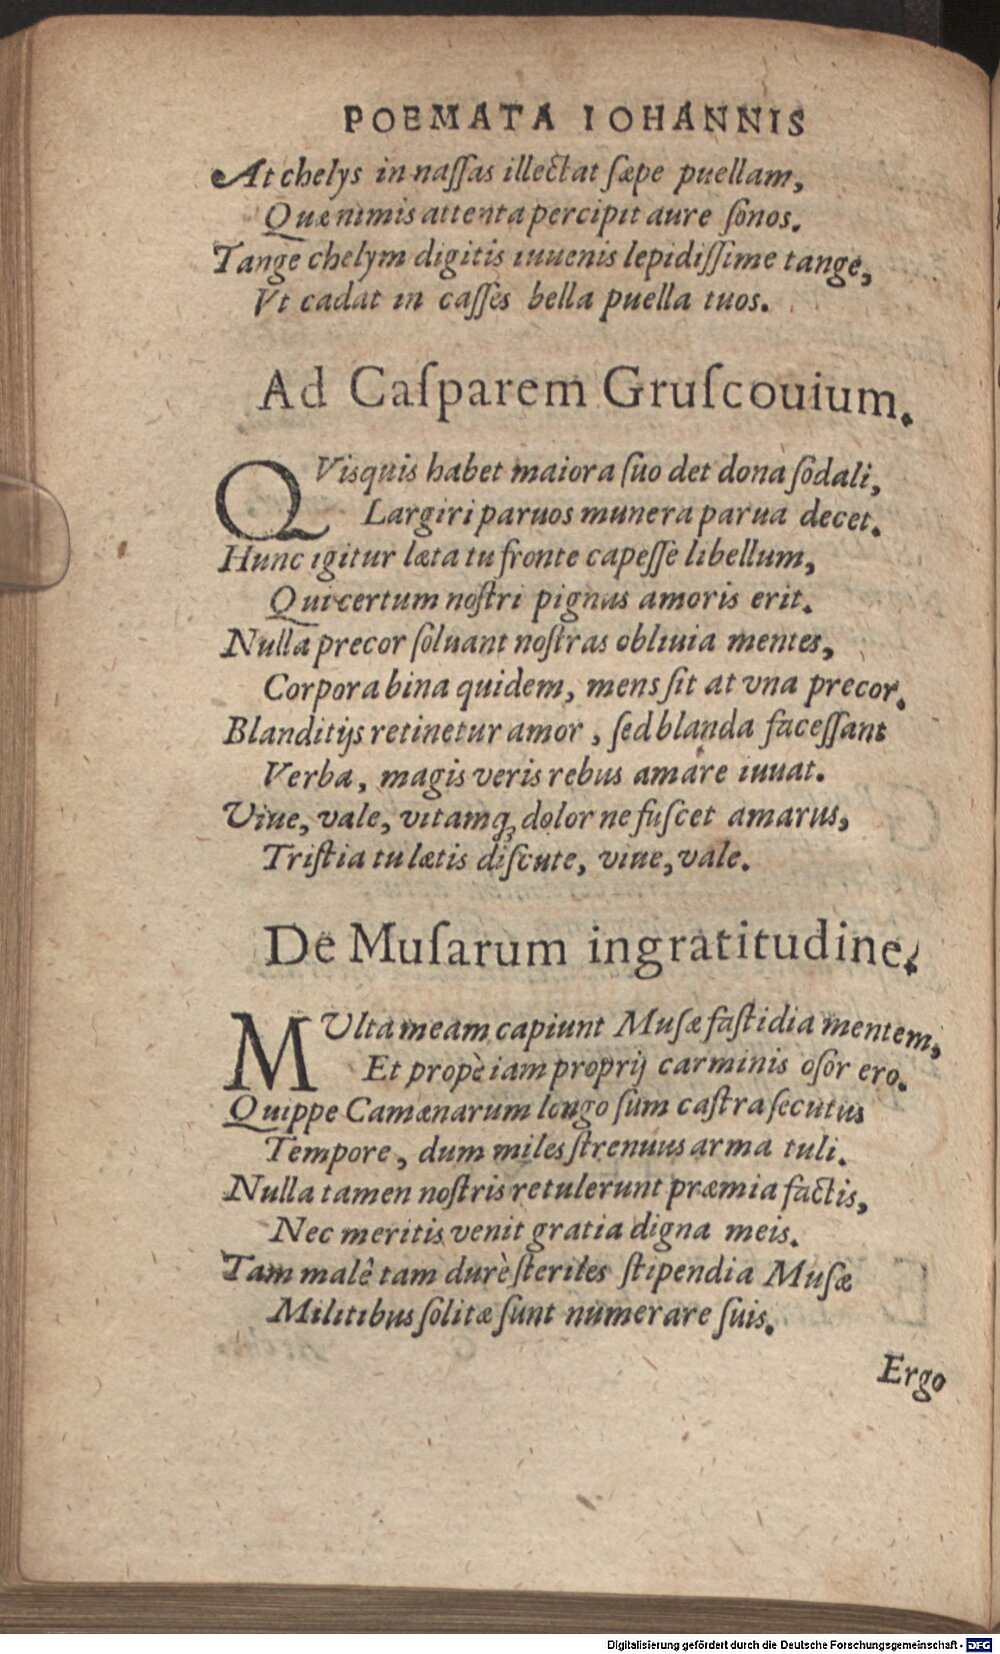 POEMATA IOHANNIS
At chelys in naſſas illectat ſæpe puellam,
Quæ nimis attenta percipit aure ſonos.
Tange chelym digitis iuuenis lepidiſſime tange,
Vt cadat in caſſes bella puella tuos.
Ad Caſparem Gruſcouium.
QVisquis habet maiora ſuo det dona ſodali,
Largiri paruos munera parua decet.
Hunc igitur læta tu fronte capeſſe libellum,
Qui certum noſtri pignus amoris erit.
Nulla precor ſoluant noſtras obliuia mentes,
Corpora bina quidem, mens ſit at vna precor.
Blanditijs retinetur amor, ſed blanda faceſſant
Verba, magis veris rebus amare iuuat.
Viue, vale, vitamq; dolor ne fuſcet amarus,
Triſtia tu lætis diſcute, viue, vale.
De Muſarum ingratitudine.
MVlta meam capiunt Muſæ faſtidia mentem,
Et propè iam proprij carminis oſor ero.
Quippe Camænarum longo ſum caſtra ſecutus
Tempore, dum miles ſtrenuus arma tuli.
Nulla tamen noſtris retulerunt præmia factis,
Nec meritis venit gratia digna meis.
Tam malê tam durè ſteriles ſtipendia Muſæ
Militibus ſolitæ ſunt numerare ſuis.
Ergo
Digitalisierung gefördert durch die Deutsche Forschungsgemeinschaft - DFG